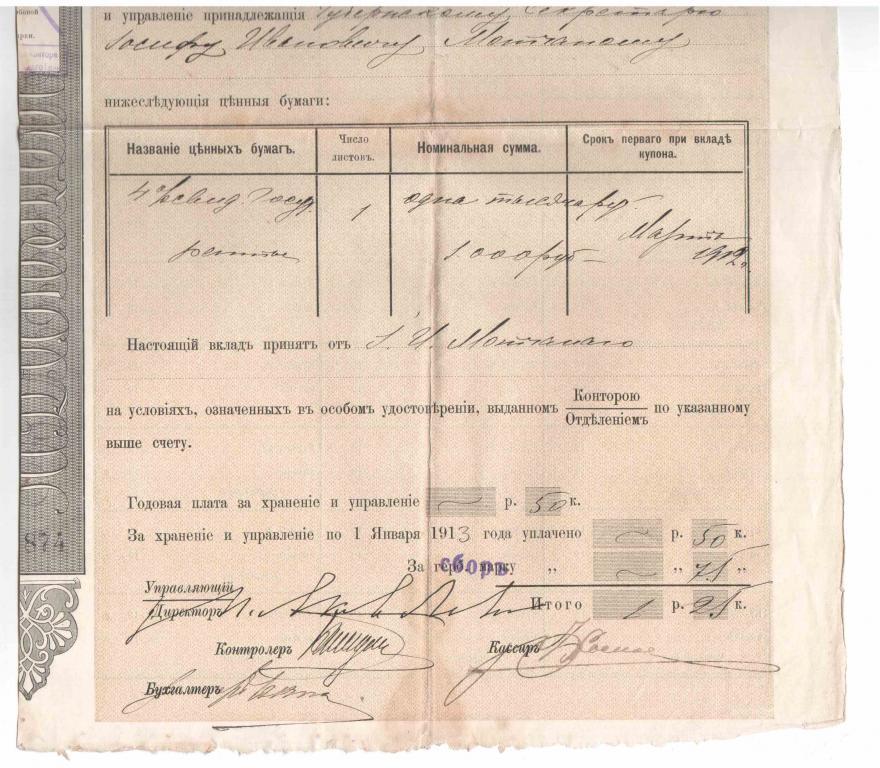 и управленіе принадлежащія Губернскому Секретарю
Іосифу Ивановичу
нижеслѣдующія цѣнныя бумаги:
Названіе цѣнныхъ бумагъ. Число листовъ. Номинальная сумма. Срокъ перваго при вкладѣ купона.
4% Госуд. 1 одна тысяча руб.
ренты 1.000 руб — Мартъ 1912 г.
Настоящій вкладъ принятъ отъ І. И.
на условіяхъ, означенныхъ въ особомъ удостовѣреніи, выданномъ Конторою / Отдѣленіемъ по указанному
выше счету.
Годовая плата за храненіе и управленіе ~ р. 50 к.
За храненіе и управленіе по 1 Января 1913 года уплачено ~ р. 50 к.
За герб. марку сборъ „ ~ „ 75 „
Итого 1 р. 25 к.
Управляющій
Директоръ
Контролеръ
Кассиръ
Бухгалтеръ
874